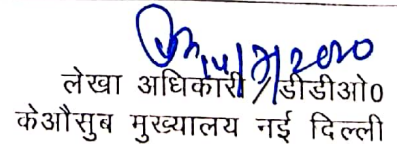 14/7/2020
लेखा अधिकारी / डीडीओ0
केऔसुब मुख्यालय नई दिल्ली